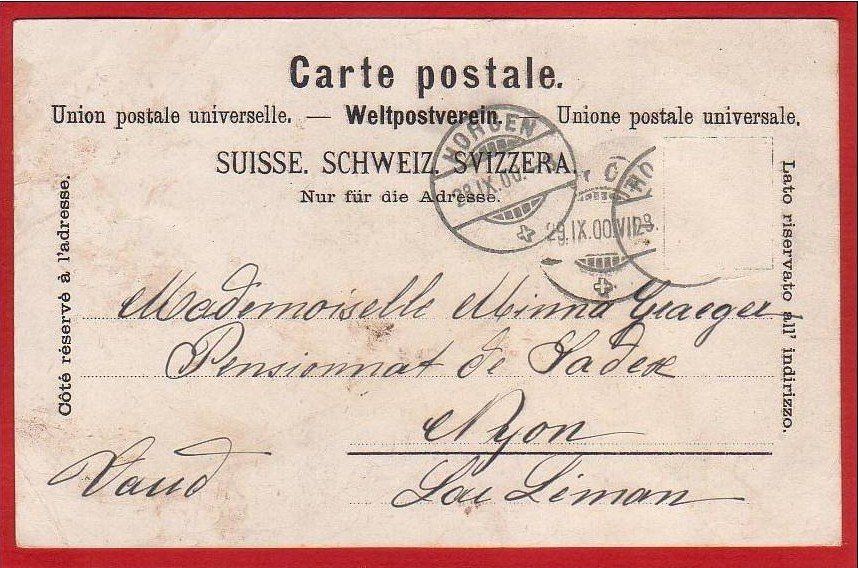 Carte postale.
Union postale universelle. — Weltpostverein. — Unione postale universale.
SUISSE. SCHWEIZ. SVIZZERA.
Nur für die Adresse.
Côté réservé à l'adresse.
Lato riservato all' indirizzo.
HORGEN
28.IX.00.
29.IX.00.VII
Mademoiselle Minna Graeger
Pensionnat de Sadex
Nyon
Vaud
Lac Léman